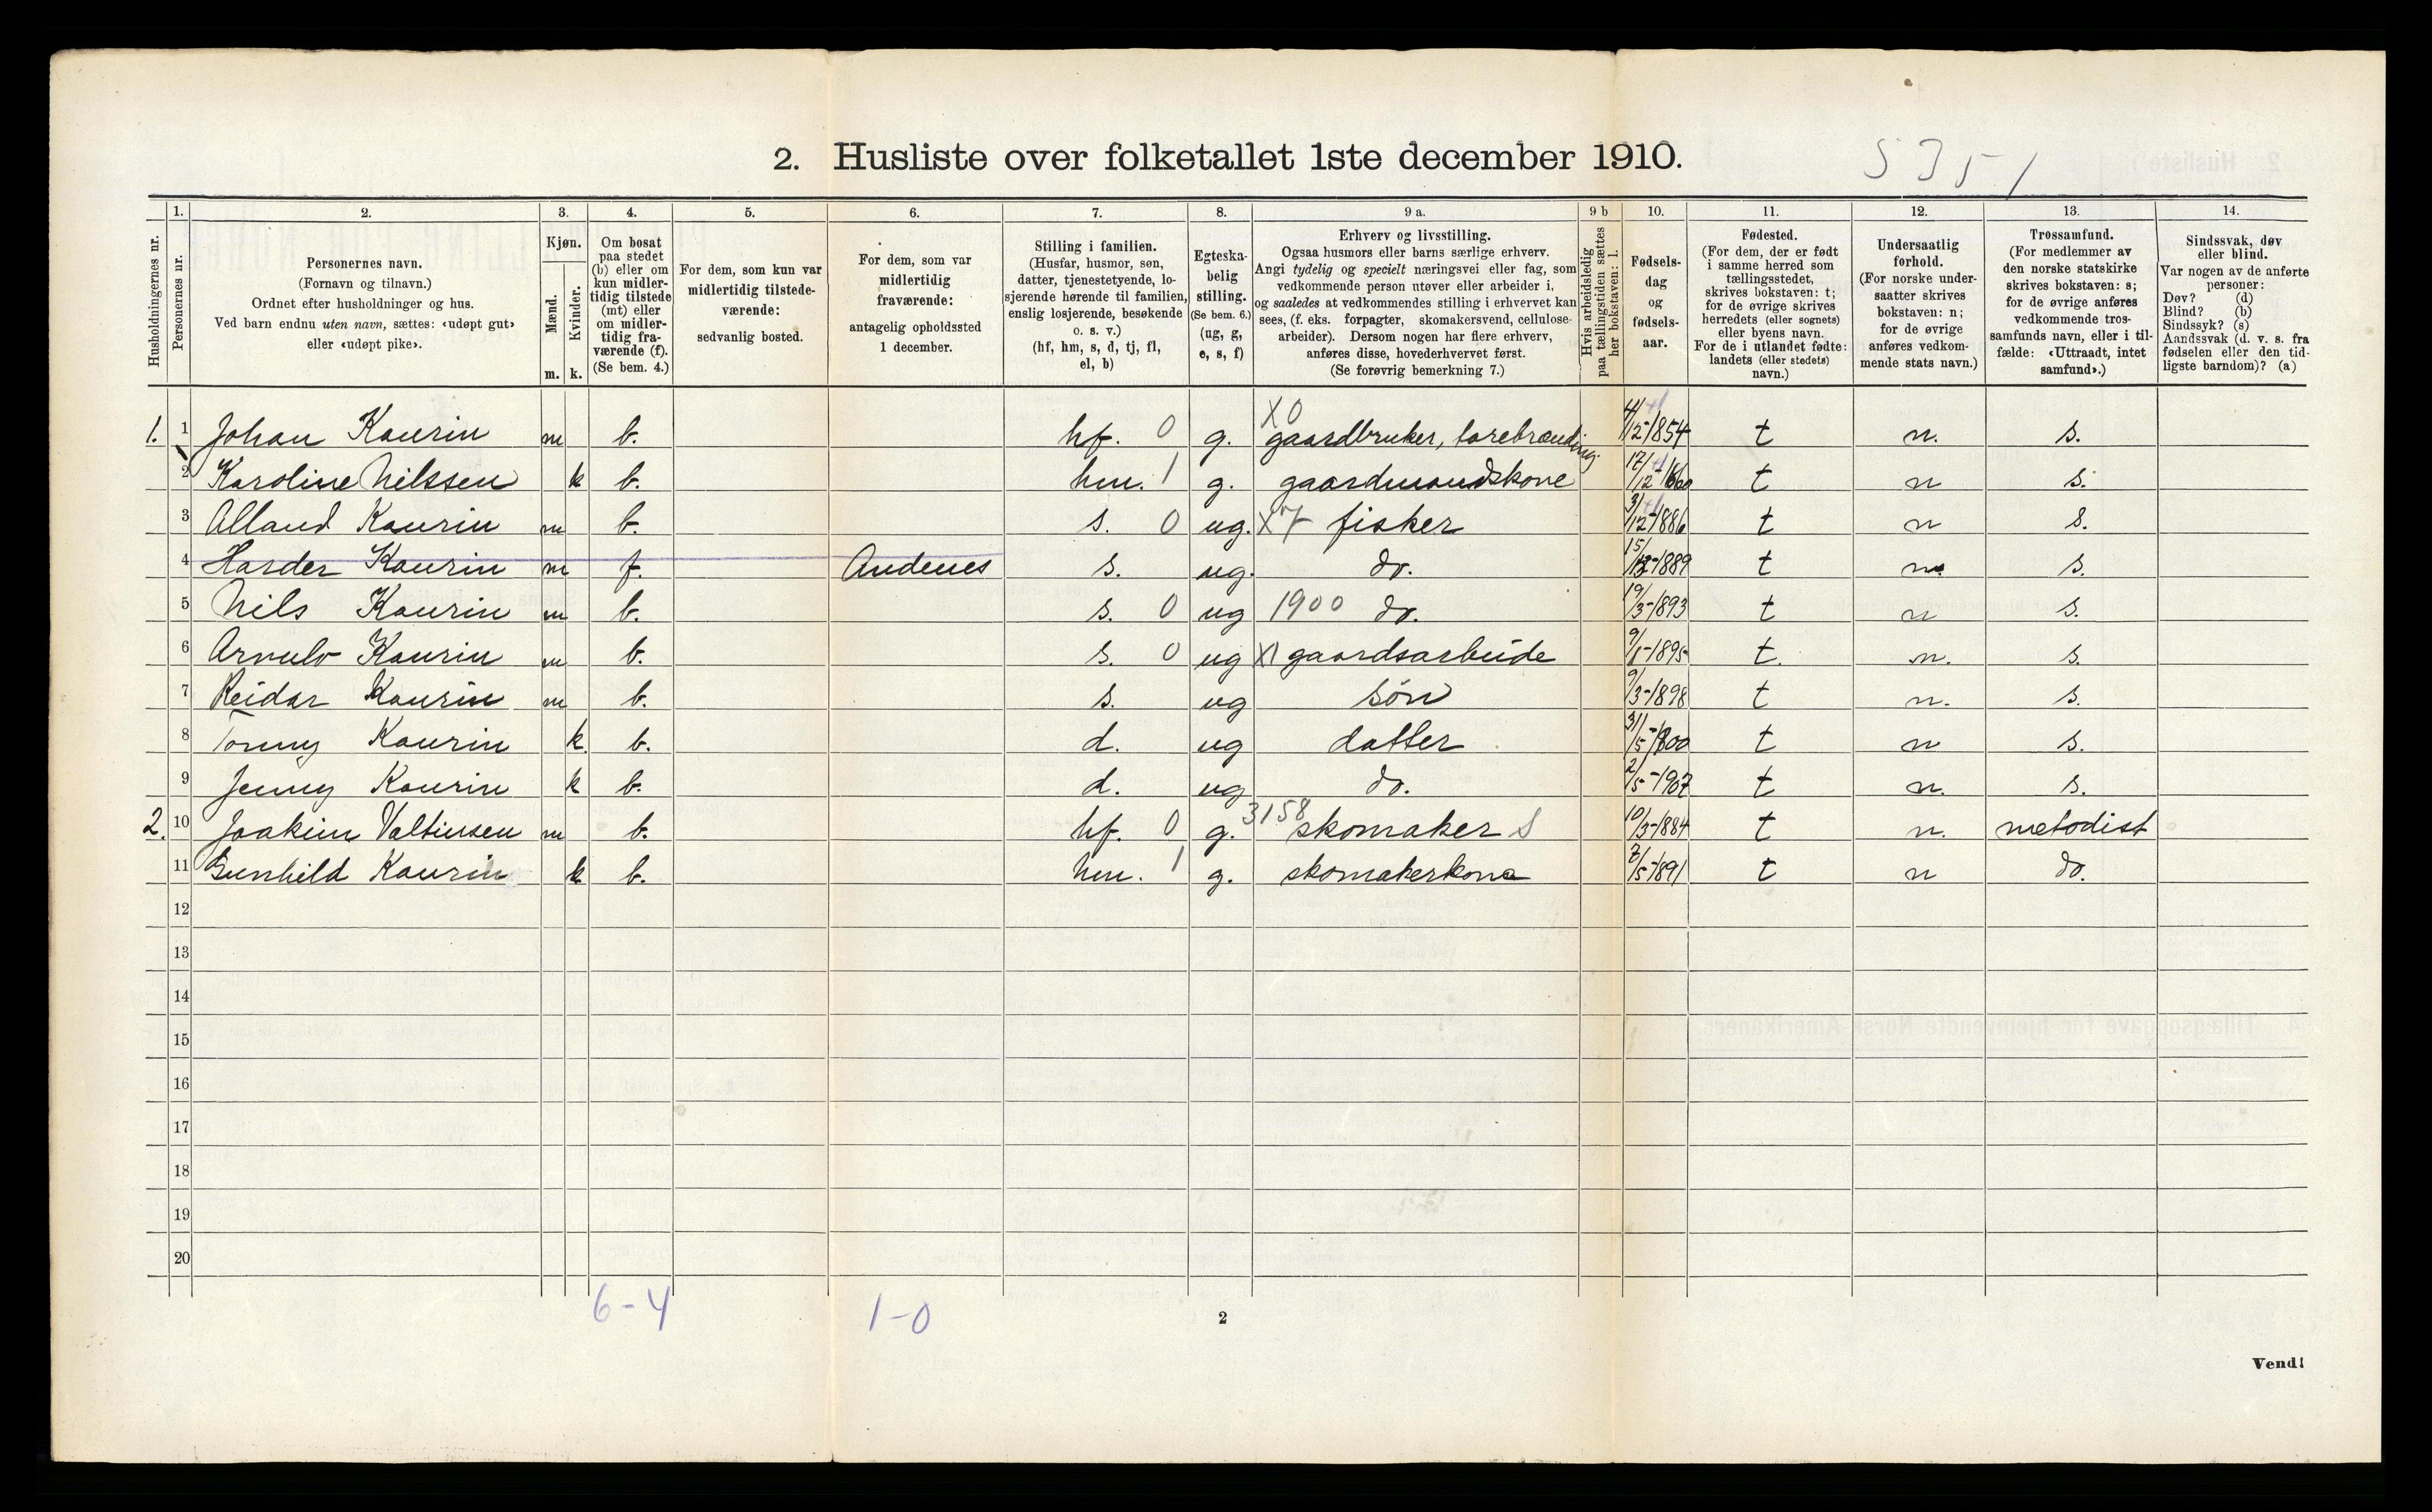 2. Husliste over folketallet 1ste december 1910.
5351
Husholdningernes nr.
1.
Personernes nr.
2.
Personernes navn.
(Fornavn og tilnavn.)
Ordnet efter husholdninger og hus.
Ved barn endnu uten navn, sættes: «udøpt gut»
eller «udøpt pike».
3.
Kjøn.
Mænd.
Kvinder.
m. k.
4.
Om bosat
paa stedet
(b) eller om
kun midler-
tidig tilstede
(mt) eller
om midler-
tidig fra-
værende (f).
(Se bem. 4.)
5.
For dem, som kun var
midlertidig tilstede-
værende:
sedvanlig bosted.
6.
For dem, som var
midlertidig
fraværende:
antagelig opholdssted
1 december.
7.
Stilling i familien.
(Husfar, husmor, søn,
datter, tjenestetyende, lo-
sjerende hørende til familien,
enslig losjerende, besøkende
o. s. v.)
(hf, hm, s, d, tj, fl,
el, b)
8.
Egteska-
belig
stilling.
(Se bem. 6.)
(ug, g,
e, s, f)
9 a.
Erhverv og livsstilling.
Ogsaa husmors eller barns særlige erhverv.
Angi tydelig og specielt næringsvei eller fag, som
vedkommende person utøver eller arbeider i,
og saaledes at vedkommendes stilling i erhvervet kan
sees, (f. eks. forpagter, skomakersvend, cellulose-
arbeider). Dersom nogen har flere erhverv,
anføres disse, hovederhvervet først.
(Se forøvrig bemerkning 7.)
9 b
Hvis arbeidsledig
paa tællingstiden sættes
her bokstaven: l.
10.
Fødsels-
dag
og
fødsels-
aar.
11.
Fødested.
(For dem, der er født
i samme herred som
tællingsstedet,
skrives bokstaven: t;
for de øvrige skrives
herredets (eller sognets)
eller byens navn.
For de i utlandet fødte:
landets (eller stedets)
navn.)
12.
Undersaatlig
forhold.
(For norske under-
saatter skrives
bokstaven: n;
for de øvrige
anføres vedkom-
mende stats navn.)
13.
Trossamfund.
(For medlemmer av
den norske statskirke
skrives bokstaven: s;
for de øvrige anføres
vedkommende tros-
samfunds navn, eller i til-
fælde: «Uttraadt, intet
samfund».)
14.
Sindssvak, døv
eller blind.
Var nogen av de anførte
personer:
Døv? (d)
Blind? (b)
Sindssyk? (s)
Aandssvak (d. v. s. fra
fødselen eller den tid-
ligste barndom)? (a)
1. 1 Johan Kaurin m b. hf. 0 g. X0 gaardbruker, tarebrænding 4/12-1854 t n. s.
2 Karoline Nilssen k b. hm. 1 g. gaardmandskone 17/12-1860 t n s.
3 Alland Kaurin m b. s. 0 ug. X7 fisker 3/12-1886 t n s.
4 Harder Kaurin m f. Andenes s. ug. do. 15/12-1889 t n. s.
5 Nils Kaurin m b. s. 0 ug 1900 do. 19/3-1893 t n s.
6 Arnulv Kaurin m b. s. 0 ug X1 gaardsarbeide 9/1-1895 t. n. s.
7 Reidar Kaurin m b. s. ug søn 9/3-1898 t n. s.
8 Tonny Kaurin k. b. d. ug datter 31/5-1900 t n s.
9 Jenny Kaurin k b. d. ug do. 2/5-1907 t n. s.
2. 10 Joakim Valtinsen m b. hf. 0 g. 3158 skomaker S 10/3-1884 t n. metodist
11 Gunhild Kaurin k b. hm. 1 g. skomakerkone 7/5-1891 t n do.
12
13
14
15
16
17
18
19
20
6-4 1-0
2
Vend!